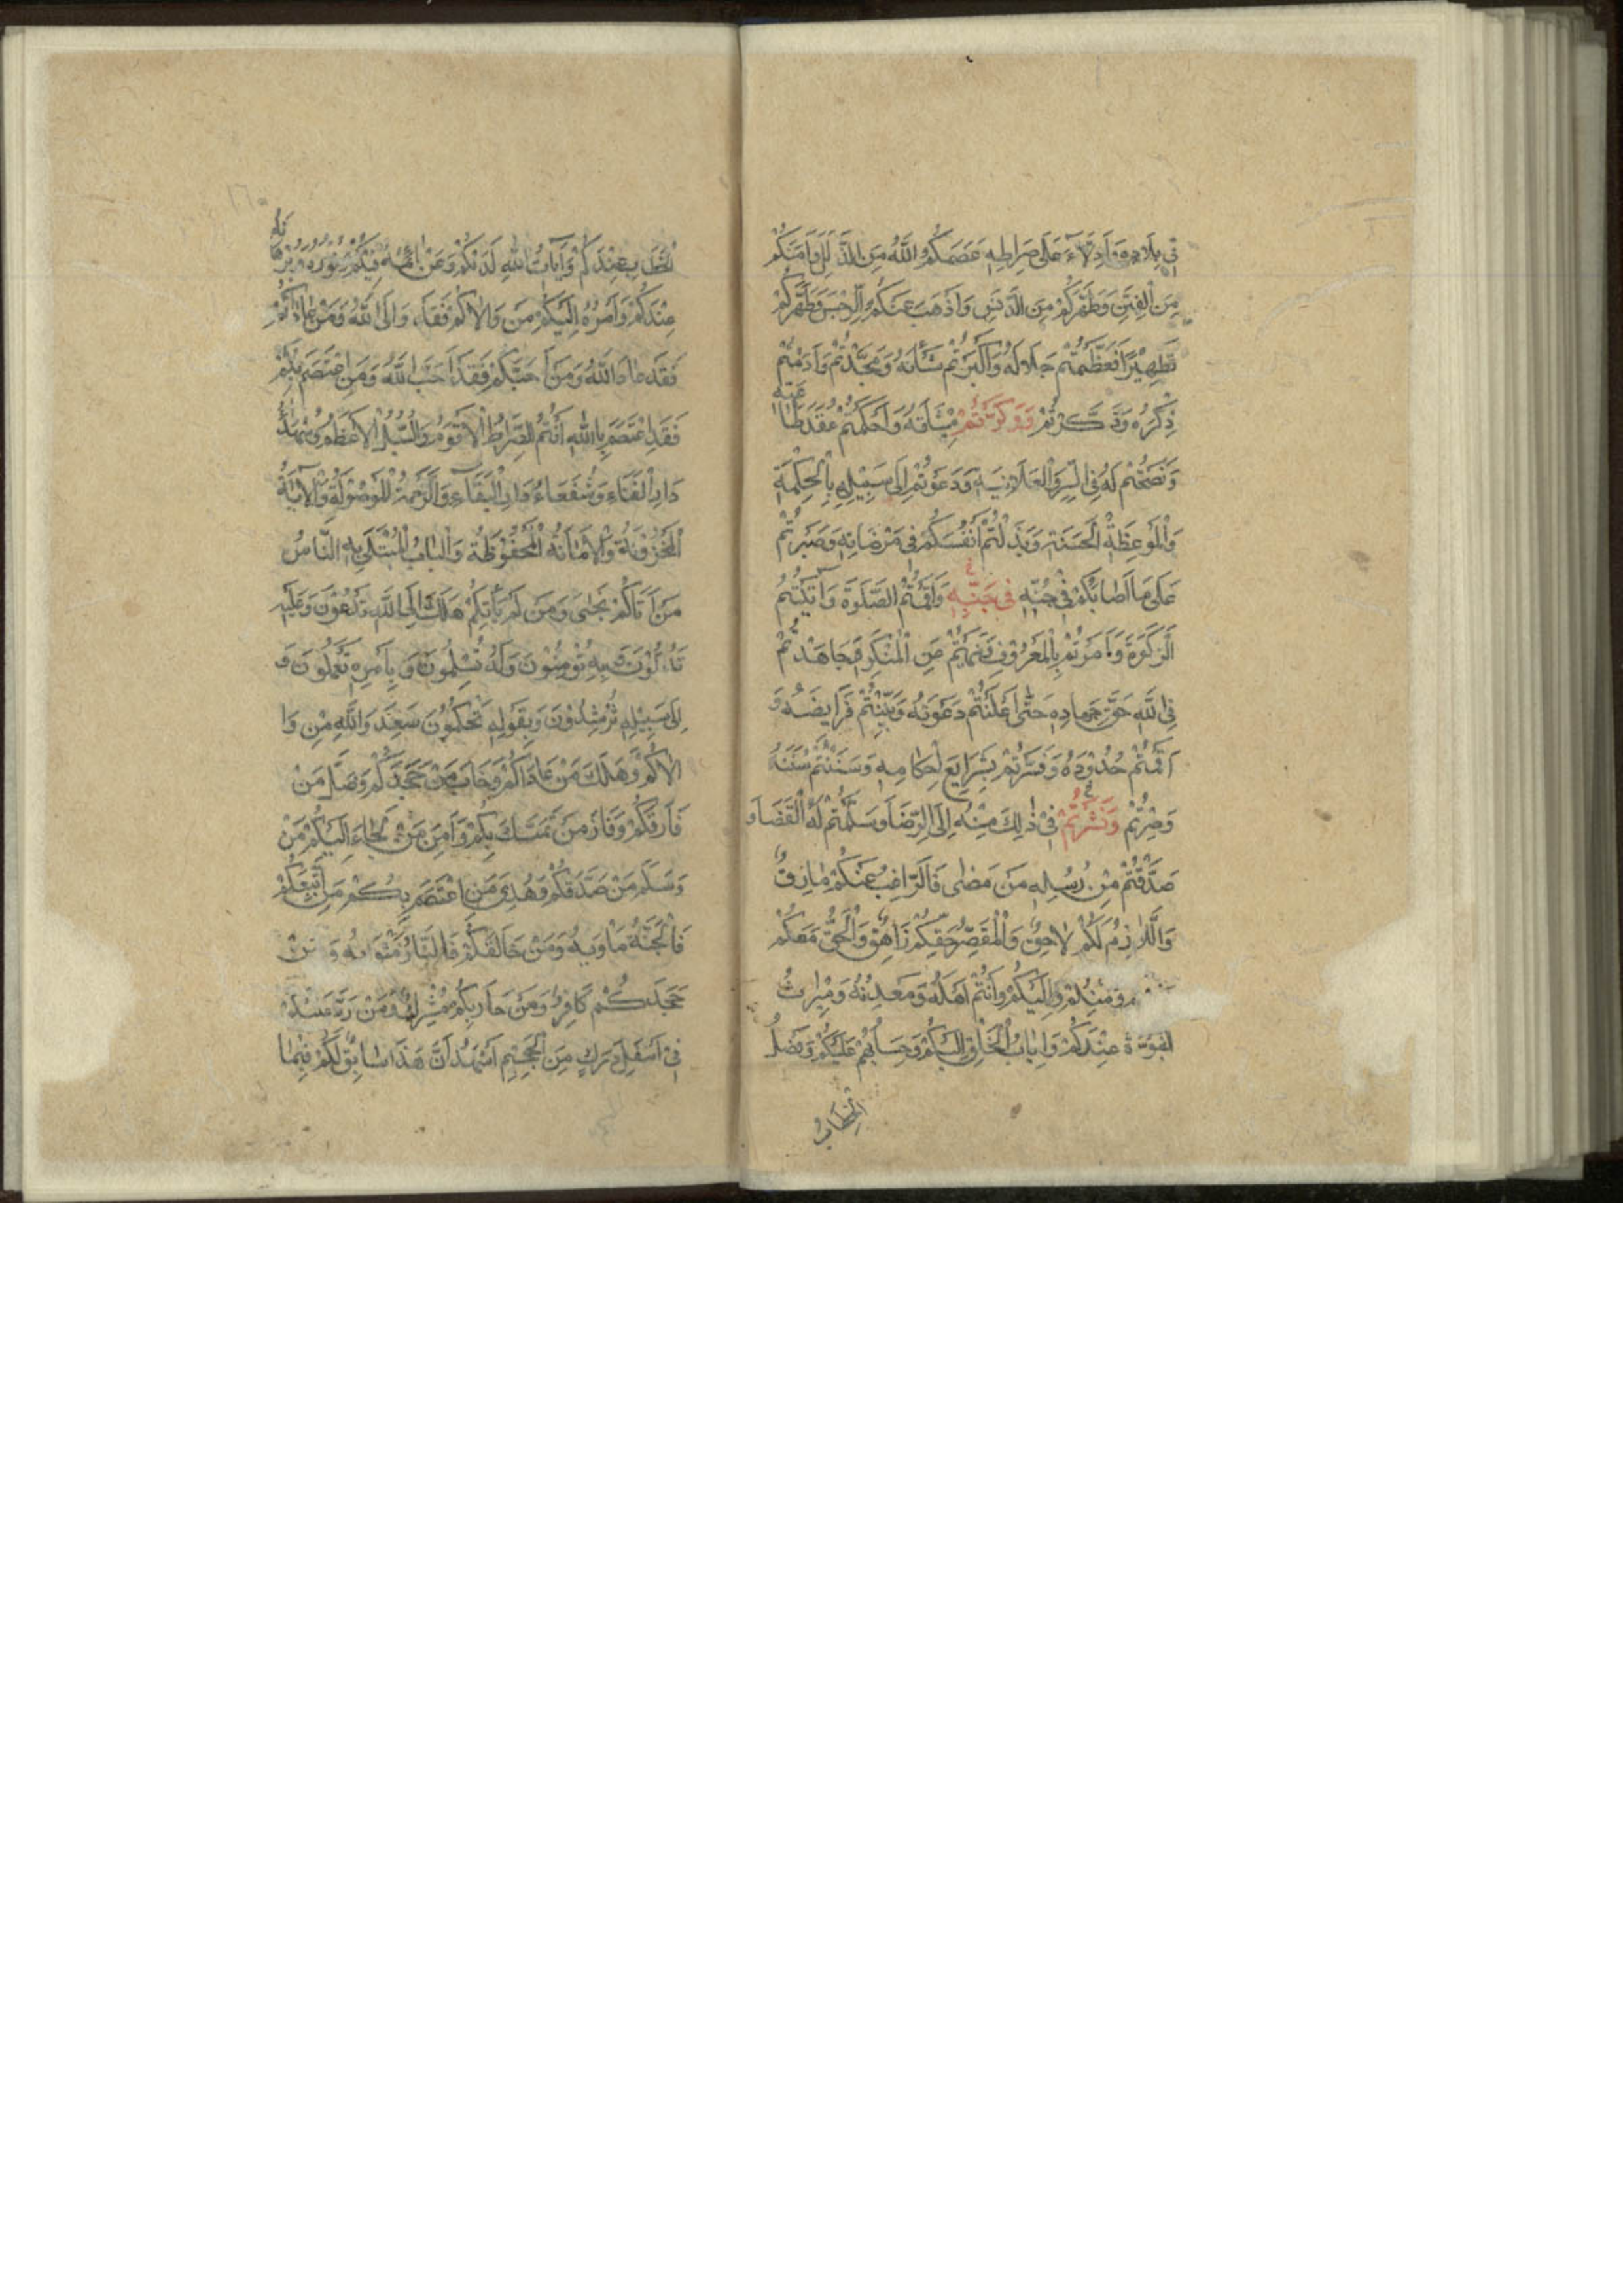 فِي بِلَادِهِ وَاَدِلَّاءَ عَلَى صِرَاطِهِ عَصَمَكُمُ اللَّهُ مِنَ الذَّلَلِ وَاَمَنَكُمْ
مِنَ الْفِتَنِ وَطَهَّرَكُمْ مِنَ الدَّنَسِ وَاَذْهَبَ عَنْكُمُ الرِّجْسَ وَطَهَّرَكُمْ
تَطْهِيْرًا فَعَظَّمْتُمْ جَلَالَهُ وَاَكْبَرْتُمْ شَأْنَهُ وَمَجَّدْتُمْ وَاَدَمْتُمْ
ذِكْرَهُ وَذَكَّرْتُمْ وَوَكَّدْتُمْ مِيْثَاقَهُ وَاَحْكَمْتُمْ عَقْدَ طَا
عَتِهِ
وَنَصَحْتُمْ لَهُ فِي السِّرِّ وَالْعَلَانِيَةِ وَدَعَوْتُمْ اِلَى سَبِيْلِهِ بِالْحِكْمَةِ
وَالْمَوْعِظَةِ الْحَسَنَةِ وَبَذَلْتُمْ اَنْفُسَكُمْ فِي مَرْضَاتِهِ وَصَبَرْتُمْ
عَلَى مَا اَصَابَكُمْ فِي حُبِّهِ فِي جَنْبِهِ وَاَقَمْتُمُ الصَّلٰوةَ وَاٰتَيْتُمُ
الزَّكٰوةَ وَاَمَرْتُمْ بِالْمَعْرُوْفِ وَنَهَيْتُمْ عَنِ الْمُنْكَرِ وَجَاهَدْتُمْ
فِي اللَّهِ حَقَّ جِهَادِهِ حَتّٰى اَعْلَنْتُمْ دَعْوَتَهُ وَبَيَّنْتُمْ فَرَايِضَهُ وَ
اَقَمْتُمْ حُدُوْدَهُ وَفَسَّرْتُمْ شَرَايِعَ اَحْكَامِهِ وَسَنَنْتُمْ سُنَنَهُ
وَصِرْتُمْ وَنَشَرْتُمْ فِي ذٰلِكَ مِنْهُ اِلَى الرِّضَا وَسَلَّمْتُمْ لَهُ الْقَضَا وَ
صَدَّقْتُمْ مِنْ رُسُلِهِ مَنْ مَضٰى فَالرَّاغِبُ عَنْكُمْ مَارِقٌ
وَاللَّازِمُ لَكُمْ لَاحِقٌ وَالْمُقَصِّرُ حَقِّكُمْ زَاهِقٌ وَالْحَقُّ مَعَكُمْ
وَمِنْكُمْ وَاِلَيْكُمْ وَاَنْتُمْ اَهْلُهُ وَمَعْدِنُهُ وَمِيْرَاثُ
النُّبُوَّةِ عِنْدَكُمْ وَاِيَابُ الْخَلْقِ اِلَيْكُمْ وَحِسَابُهُمْ عَلَيْكُمْ وَفَصْلُ
الْخِطَابِ
الْخِطَابِ عِنْدَكُمْ وَاٰيَاتُ اللّٰهِ لَدَيْكُمْ وَعَزَائِمُهُ فِيْكُمْ وَنُوْرُهُ وَبُرْهَا
نُهُ
عِنْدَكُمْ وَاَمْرُهُ اِلَيْكُمْ مَنْ وَالَاكُمْ فَقَدْ وَالَى اللّٰهَ وَمَنْ عَادَاكُمْ
فَقَدْ عَادَ اللّٰهَ وَمَنْ اَحَبَّكُمْ فَقَدْ اَحَبَّ اللّٰهَ وَمَنِ اعْتَصَمَ بِكُمْ
فَقَدِ اعْتَصَمَ بِاللّٰهِ اَنْتُمُ الصِّرَاطُ الْاَقْوَمُ وَالسُّبُلُ الْاَعْظَمُ وَشُهَدَاءُ
دَارِ الْفَنَاءِ وَشُفَعَاءُ دَارِ الْبَقَاءِ وَالرَّحْمَةُ الْمَوْصُوْلَةُ وَالْاٰيَةُ
الْمَخْزُوْنَةُ وَالْاَمَانَةُ الْمَحْفُوْظَةُ وَالْبَابُ الْمُبْتَلٰى بِهِ النَّاسُ
مَنْ اَتَاكُمْ نَجٰى وَمَنْ لَمْ يَأْتِكُمْ هَلَكَ اِلَى اللّٰهِ تَدْعُوْنَ وَعَلَيْهِ
تَدُلُّوْنَ وَبِهِ تُؤْمِنُوْنَ وَلَهُ تُسْلِمُوْنَ وَبِاَمْرِهِ تَعْمَلُوْنَ وَ
اِلَى سَبِيْلِهِ تُرْشِدُوْنَ وَبِقَوْلِهِ تَحْكُمُوْنَ سَعِدَ وَاللّٰهِ مَنْ وَا
لَاكُمْ وَهَلَكَ مَنْ عَادَاكُمْ وَخَابَ مَنْ جَحَدَكُمْ وَضَلَّ مَنْ
فَارَقَكُمْ وَفَازَ مَنْ تَمَسَّكَ بِكُمْ وَاَمِنَ مَنْ لَجَاءَ اِلَيْكُمْ مَنْ
وَسَلِمَ مَنْ صَدَّقَكُمْ وَهُدِيَ مَنِ اعْتَصَمَ بِكُمْ مَنِ اتَّبَعَكُمْ
فَالْجَنَّةُ مَاْوٰيهُ وَمَنْ خَالَفَكُمْ فَالنَّارُ مَثْوَاهُ وَمَنْ
جَحَدَكُمْ كَافِرٌ وَمَنْ حَارَبَكُمْ مُشْرِكٌ وَمَنْ رَدَّ
فِي اَسْفَلِ دَرَكٍ مِنَ الْجَحِيْمِ اَشْهَدُ اَنَّ هَذَا سَابِقٌ لَكُمْ فِيْمَا